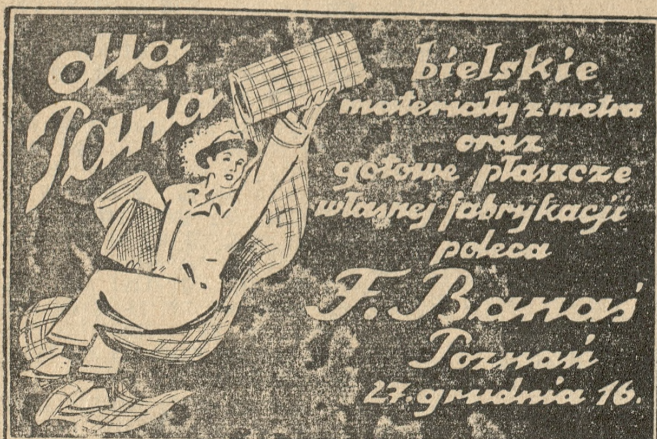 dla
Pana
bielskie
materiały z metra
oraz
gotowe płaszcze
własnej fabrykacji
poleca
F. Banaś
Poznań
27. grudnia 16.